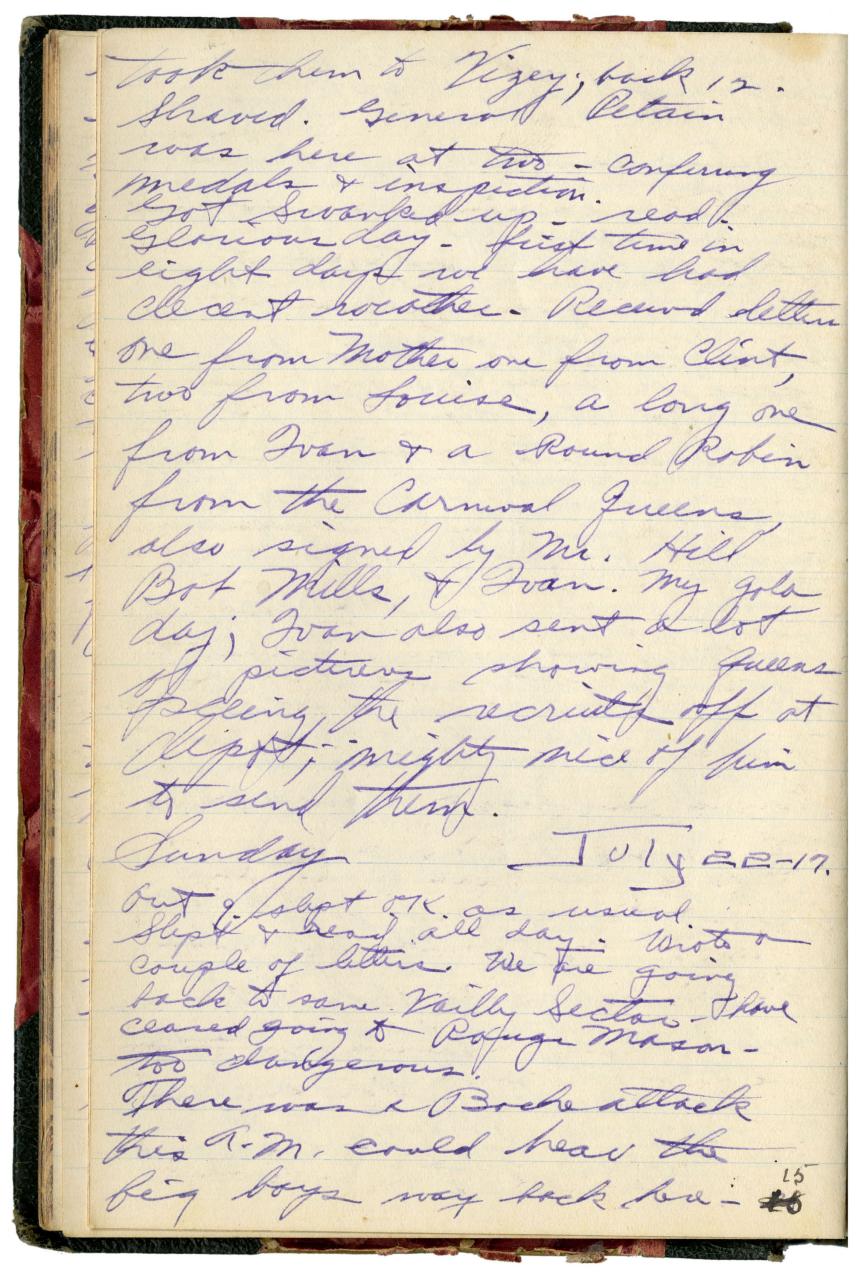 took them to Vizey; back 12.
Shaved. General Petain
was here at two - conferring
medals & inspection.
Got Swanked up - read -
Glorious day - first time in
eight days we have had
decent weather - Received letters
one from Mother one from Clint,
two from Louise, a long one
from Ivan & a Round Robin
from the Carnival Queens,
also signed by Mr. Hill
Bob Mills, & Ivan. My gala
day; Ivan also sent a lot
of pictures showing Queens
seeing the recruits off at
depot; mighty nice of him
to send them.
Sunday July 22-17.
Out 9. slept OK. as usual
Slept & read all day - Wrote a
couple of letters. We are going
back to same Vailly Sector - have
ceased going to Rouge Mason -
too dangerous.
There was a Boche attack
this A.M. could hear the
big boys way back here -
15